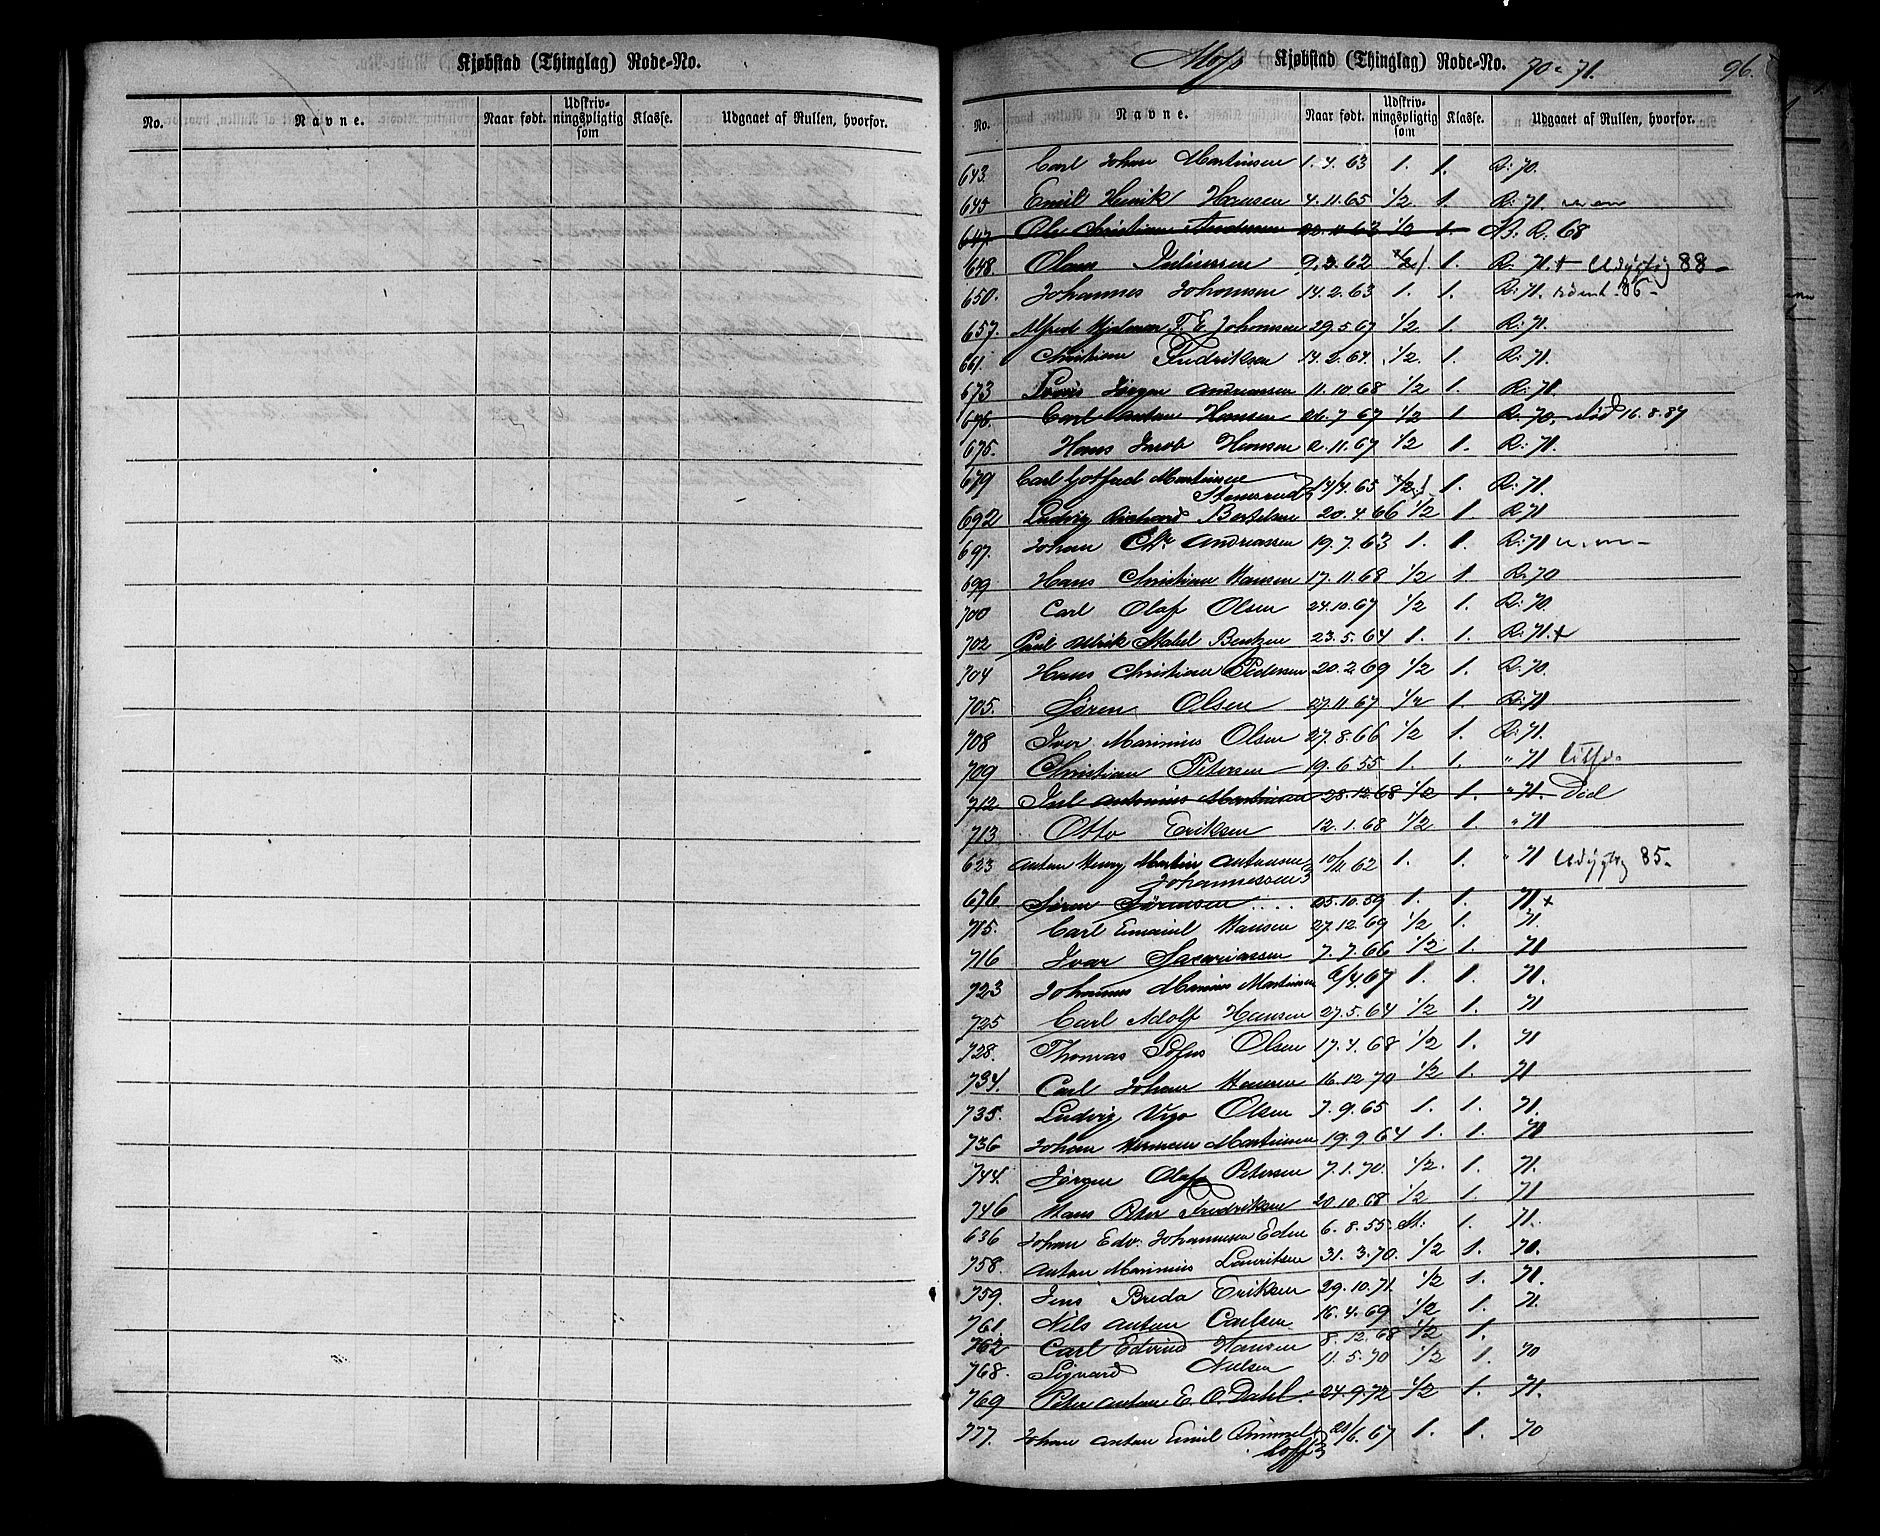 Kjøbstad (Thinglag) Rode-No.
No. Navne. Naar født. Udskriv-ningspligtig som Klasse. Udgaaet af Rullen, hvorfor.
Moss Kjøbstad (Thinglag) Rode-No. 70-71. 96.
No. Navne. Naar født. Udskriv-ningspligtig som Klasse. Udgaaet af Rullen, hvorfor.
643. Carl Johan Martinsen 1.4.63 1. 1. R: 70.
645 Emil Henrik Hansen 4.11.65 1/2 1. R: 71.
647. Ole Christian Andersen 22.11.63 1/2 1. R. 68
648. Olaus Juliussen 9.2.62 1/2 1. R. 71.+ Udygtig 88-
650. Johannes Johansen 14.2.63 1. 1. R: 71. 86-
657. Alfred Hjalmar T. E. Johansen 29.5.67 1/2 1. R: 71.
661. Christian Fredriksen 14.2.64. 1/2. 1. R: 71.
673 Jørgen Andreassen 11.10.68 1/2 1. R: 71.
696. Carl Anton Hansen 26.7.67 1/2 1. R: 70. død 16.8.87
675. Hans Jacob Hansen 2.11.67 1/2 1. R: 71.
679 Carl Gotfred Martinsen
Stensrud 14/4.65 1/2 1. R: 71.
692 Ludvig Bertelsen 20.4.66 1/2 1. R. 71
697. Johan Chr. Andreassen 19.7.63 1. 1. R: 71
699 Hans Christian Hansen 17.11.68 1/2 1. R. 70
700 Carl Olaf Olsen 24.10.67 1/2 1. R: 70.
702 Paul Ulrik Stabel Bentzen 23.5.64 1. 1. R. 71.+
704 Hans Christian Pedersen 20.2.69 1/2 1. R: 70.
705. Søren Olsen 27.11.67 1/2 1. R: 71
708 Iver Marinius Olsen 27.8.66 1/2 1. R: 71.
709 Christian Petersen 19.6.55 1. 1. " 71
712 Antonius Martinsen 28.12.68 1/2 1. " 71. Død
713. Otto Eriksen 12.1.68 1/2 1. " 71
623 Anton Henry Martin Antonsen
Johannessen 10/11 62 1. 1. " 71 Udygtig 85-
676. Søren Sørensen 25.10.59 1. 1. 71+
715. Carl Emanuel Hansen 27.12.69 1/2 1. 71.
716 Ivar Sacariassen 7.7.66 1/2 1. 71
723 Johannes Marius Martinsen 6/4.67 1. 1. 71.
725 Carl Adolf Hansen 27.5.64 1/2 1. 71
728. Thomas Sofus Olsen 17.4.68 1/2 1. 71
734. Carl Johan Hansen 16.12.70 1/2 1. 71
735. Ludvig Olsen 7.9.65 1. 1. 71.
736 Johan Herman Martinsen 19.9.64 1. 1. 71
744. Jørgen Olaf Petersen 7.1.70. 1/2. 1. 71.
746 Hans Peter Fredriksen 20.10.68 1/2 1. 71
636 Johan Edv. Johannesen Eden 6.8.55. St: 1. 71.
758. Anton Marinius Lauritsen 31.3.70. 1/2 1. 71.
759. Jens Breda Eriksen 29.10.71. 1/2 1. 71.
761 Nils Anton Carlsen 16.4.69 1/2 1. 71.
762 Carl Edvind Hansen 8.12.68 1/2 1.
768. Sigvard Nielsen 11.5.70 1/2 1. 70
769 Peter Anton E. O. Dahl. 24.9.72 1/2 1. 71.
777. Johan Anton Emil Rimmel-
hoff 21/6.67 1. 1. 70